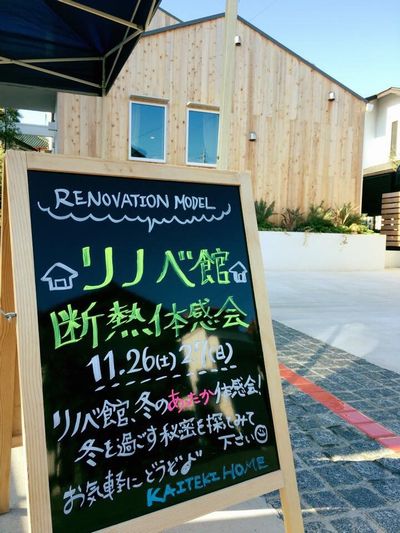 RENOVATION MODEL
リノベ館
断熱体感会
11.26(土) 27(日)
リノベ館、冬のあったか体感会!
冬を過ごす秘密を探してみて
下さい
お気軽にどうぞ♪
KAITEKI HOME